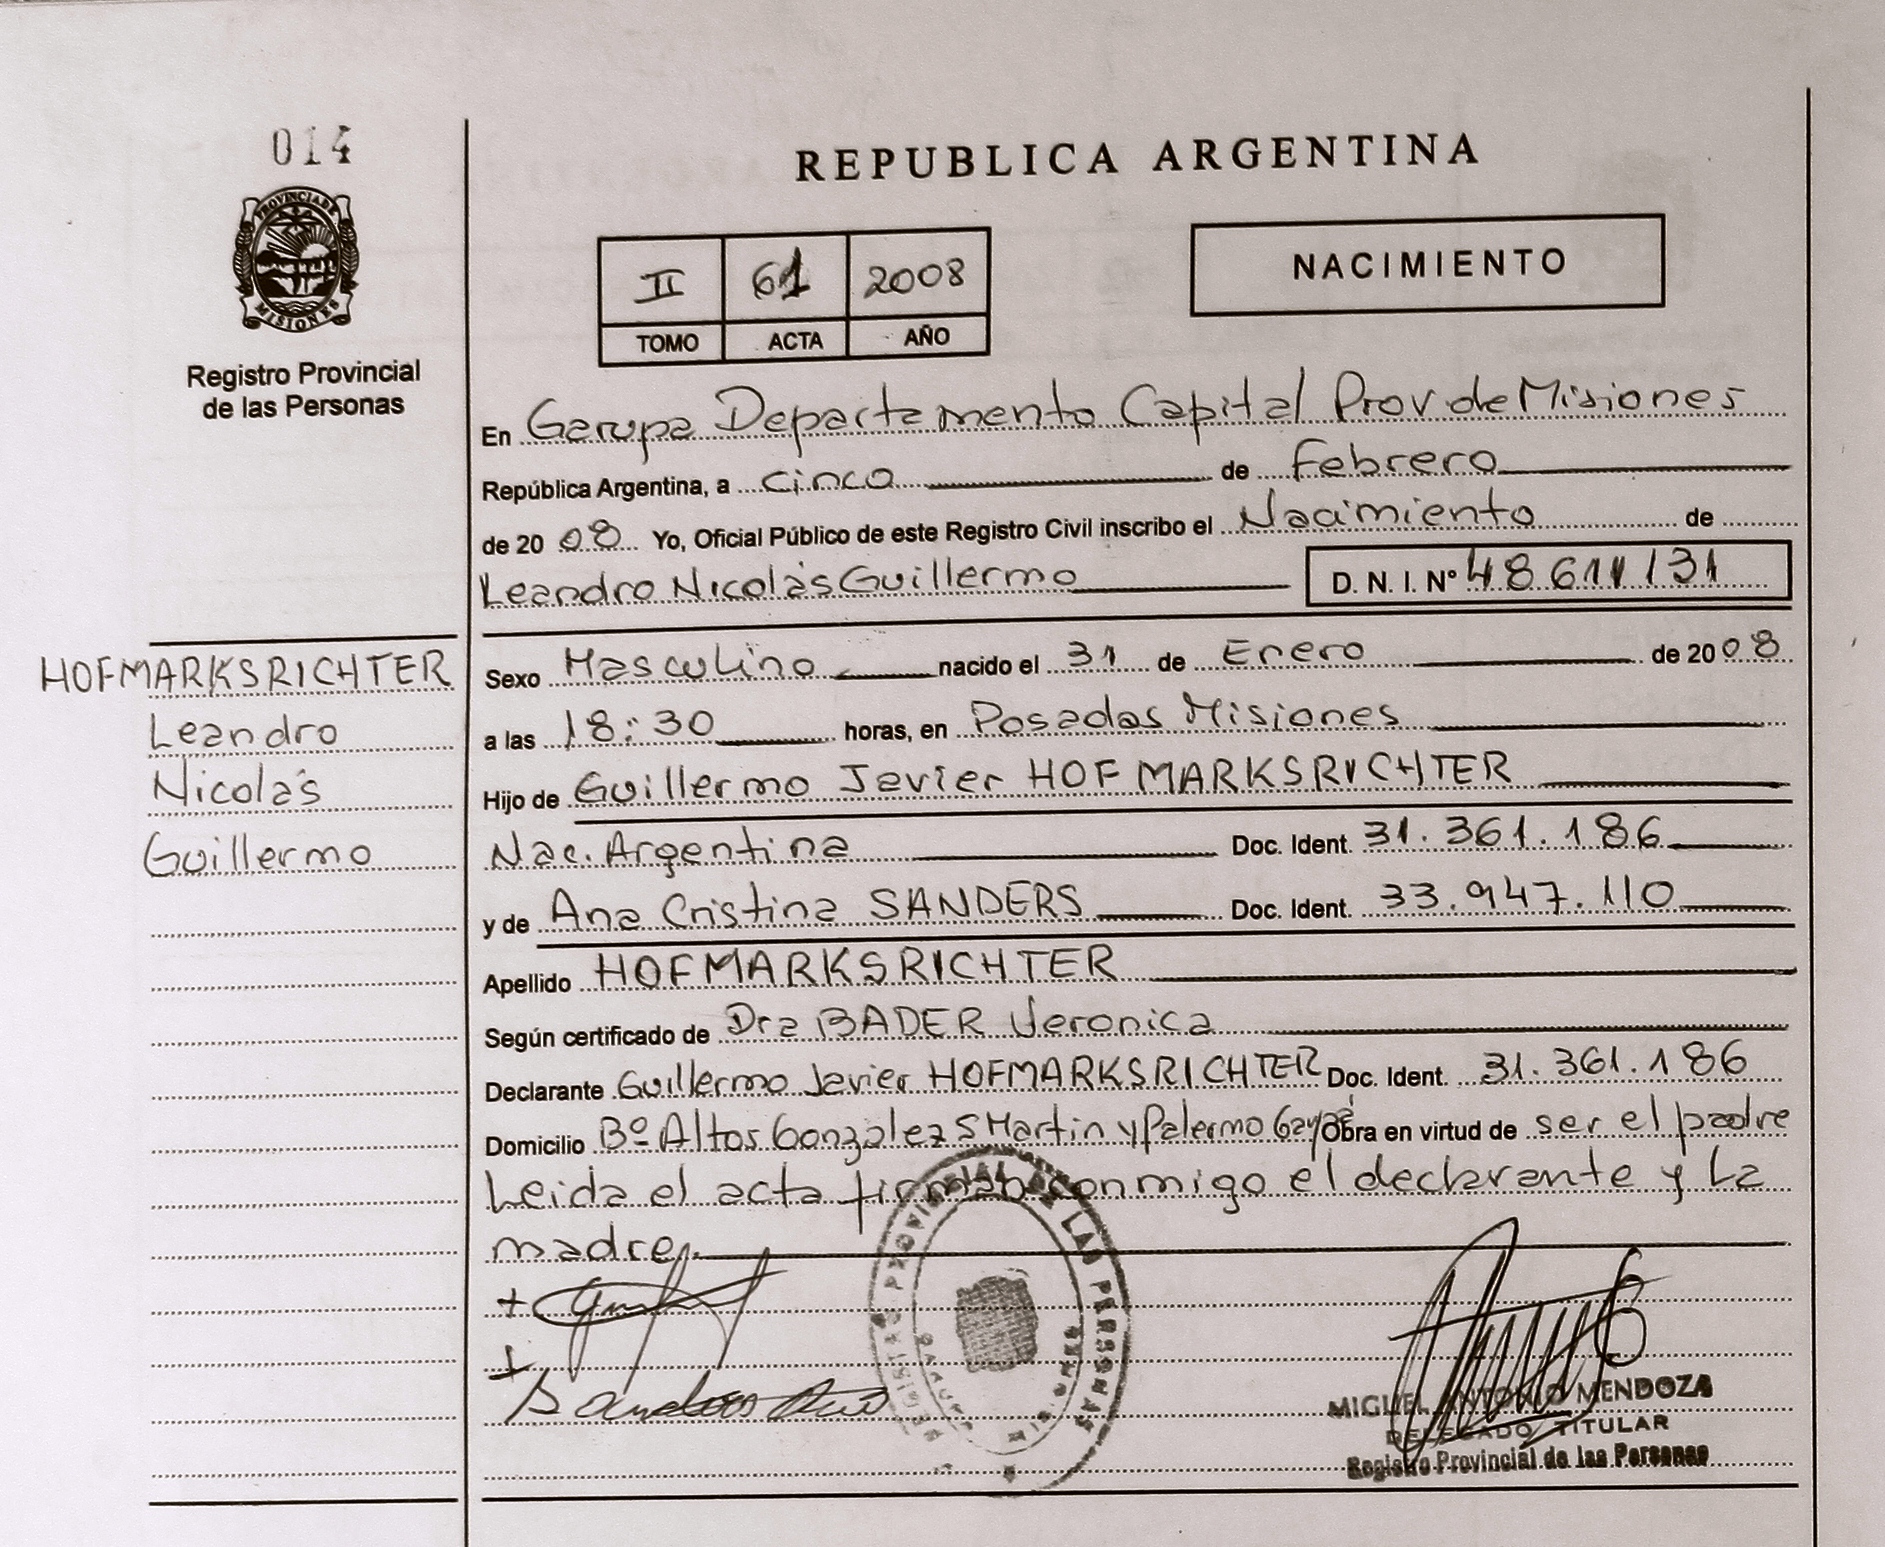 014
PROVINCIA DE
MISIONES
Registro Provincial
de las Personas
REPUBLICA ARGENTINA
II 61 2008
TOMO ACTA AÑO
NACIMIENTO
En Garupa Departamento Capital Prov de Misiones
República Argentina, a cinco de Febrero
de 2008 Yo, Oficial Público de este Registro Civil inscribo el Nacimiento de
Leandro Nicolás Guillermo D. N. I. Nº 48611131
HOFMARKSRICHTER
Leandro
Nicolás
Guillermo
Sexo Masculino nacido el 31 de Enero de 2008
a las 18:30 horas, en Posadas Misiones
Hijo de Guillermo Javier HOFMARKSRICHTER
Nac. Argentina Doc. Ident. 31.361.186
y de Ana Cristina SANDERS Doc. Ident. 33.947.110
Apellido HOFMARKSRICHTER
Según certificado de Dra BADER Veronica
Declarante Guillermo Javier HOFMARKSRICHTER Doc. Ident. 31.361.186
Domicilio Bº Altos Gonzalez S Martin y Palermo Obra en virtud de ser el padre
Leida el acta firman conmigo el declarante y La
madre.
REGISTRO PROVINCIAL DE LAS PERSONAS
MIGUEL ANTONIO MENDOZA
DELEGADO TITULAR
Registro Provincial de las Personas